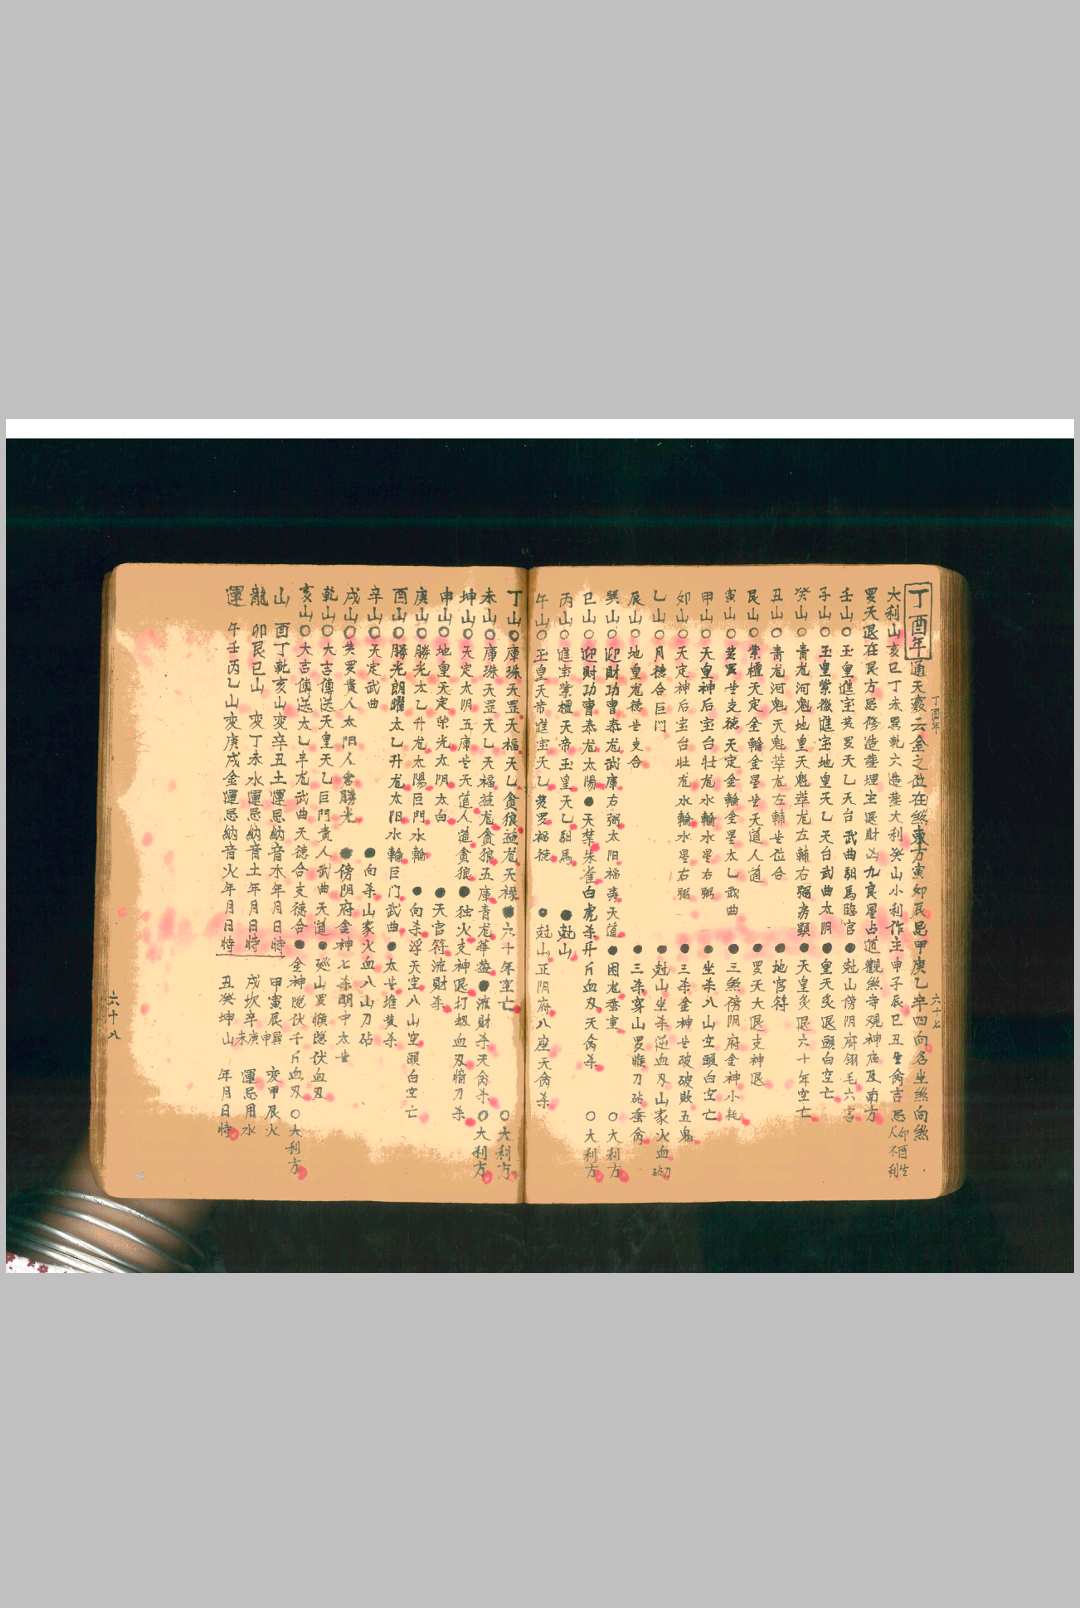 丁酉年 通天竅云金之位在煞東方寅卯辰忌甲庚乙辛四向名坐煞向煞
大利山亥巳丁未巽乾六造葬大利癸山小利作主申子辰巳丑生命吉忌卯酉生人不利
罗天退在艮方忌修造葬埋主退財凶九良星占道觀煞寺观神庙及南方
壬山○玉皇進宝芙罗天乙天台武曲馹馬臨官●尅山傍阴府翎毛六害
子山○玉皇紫微進宝地皇天乙天台武曲太阴●皇天炙退頭白空亡
癸山○青龙河魁地皇天魁華龙左輔右弼房顯●天皇炙退六十年空亡
丑山○青龙河魁天魁華龙左輔岁位合●地官符
艮山○紫檀天定金輪金星岁天道人道●罗天大退支神退
寅山○芙蓉岁支德天定金輪金星太乙武曲●三煞傍阴府金神小耗
甲山○天皇神后宝台壮龙水輪水星右弼●坐杀八山空頭白空亡
卯山○天定神后宝台壮龙水輪水星右弼●三杀金神岁破破敗五鬼
乙山○月德合巨门●尅山坐杀逆血刃山家火血刀砧
辰山○地皇龙德岁支合●三杀穿山罗睺刀砧蚕命
巽山○迎財功曹泰龙武庫右弼太阳福寿天道●困龙蚕室○大利方
巳山○迎財功曹泰龙太陽●天禁朱雀白虎杀升斤血刃天命杀○大利方
丙山○進宝紫檀天帝玉皇天乙馹馬●尅山
午山○玉皇天帝進宝天乙芙罗福德●尅山正阴府八座天命杀
丁酉年
六十七
丁山○庫珠天罡天福天乙貪狼益龙天禄●六十年空亡○大利方
未山○庫珠天罡天乙天福益龙貪狼五庫青龙華盖●流財杀天命杀○大利方
坤山○天定太阴五庫岁天道人道貪狼●独火支神退打刼血刃暗刀杀
申山○地皇天定荣光太阴太白●天官符流財杀
庚山○勝光太乙升龙太陽巨門水輪●向杀浮天空八山空頭白空亡
酉山○勝光朗曜太乙升龙太阳水輪巨门武曲●太岁堆黄杀
辛山○天定武曲●向杀山家火血八山刀砧
戌山○芙罗貴人太阳人倉勝光●傍阴府金神七杀明中太岁
乾山○大吉傳送天皇天乙巨門貴人武曲天道●巡山罗睺隐伏血刃
亥山○大吉傳送太乙丰龙武曲天德合支德合●金神隐伏千斤血刃○大利方
山 酉丁乾亥山变辛丑土運忌納音水年月日時 甲寅辰巽申 变甲辰火
龍 卯艮巳山 变丁未水運忌納音土年月日時 戌坎辛庚未 運忌用水
運 午壬丙乙山变庚戌金運忌納音火年月日時 丑癸坤山 年月日時
六十八